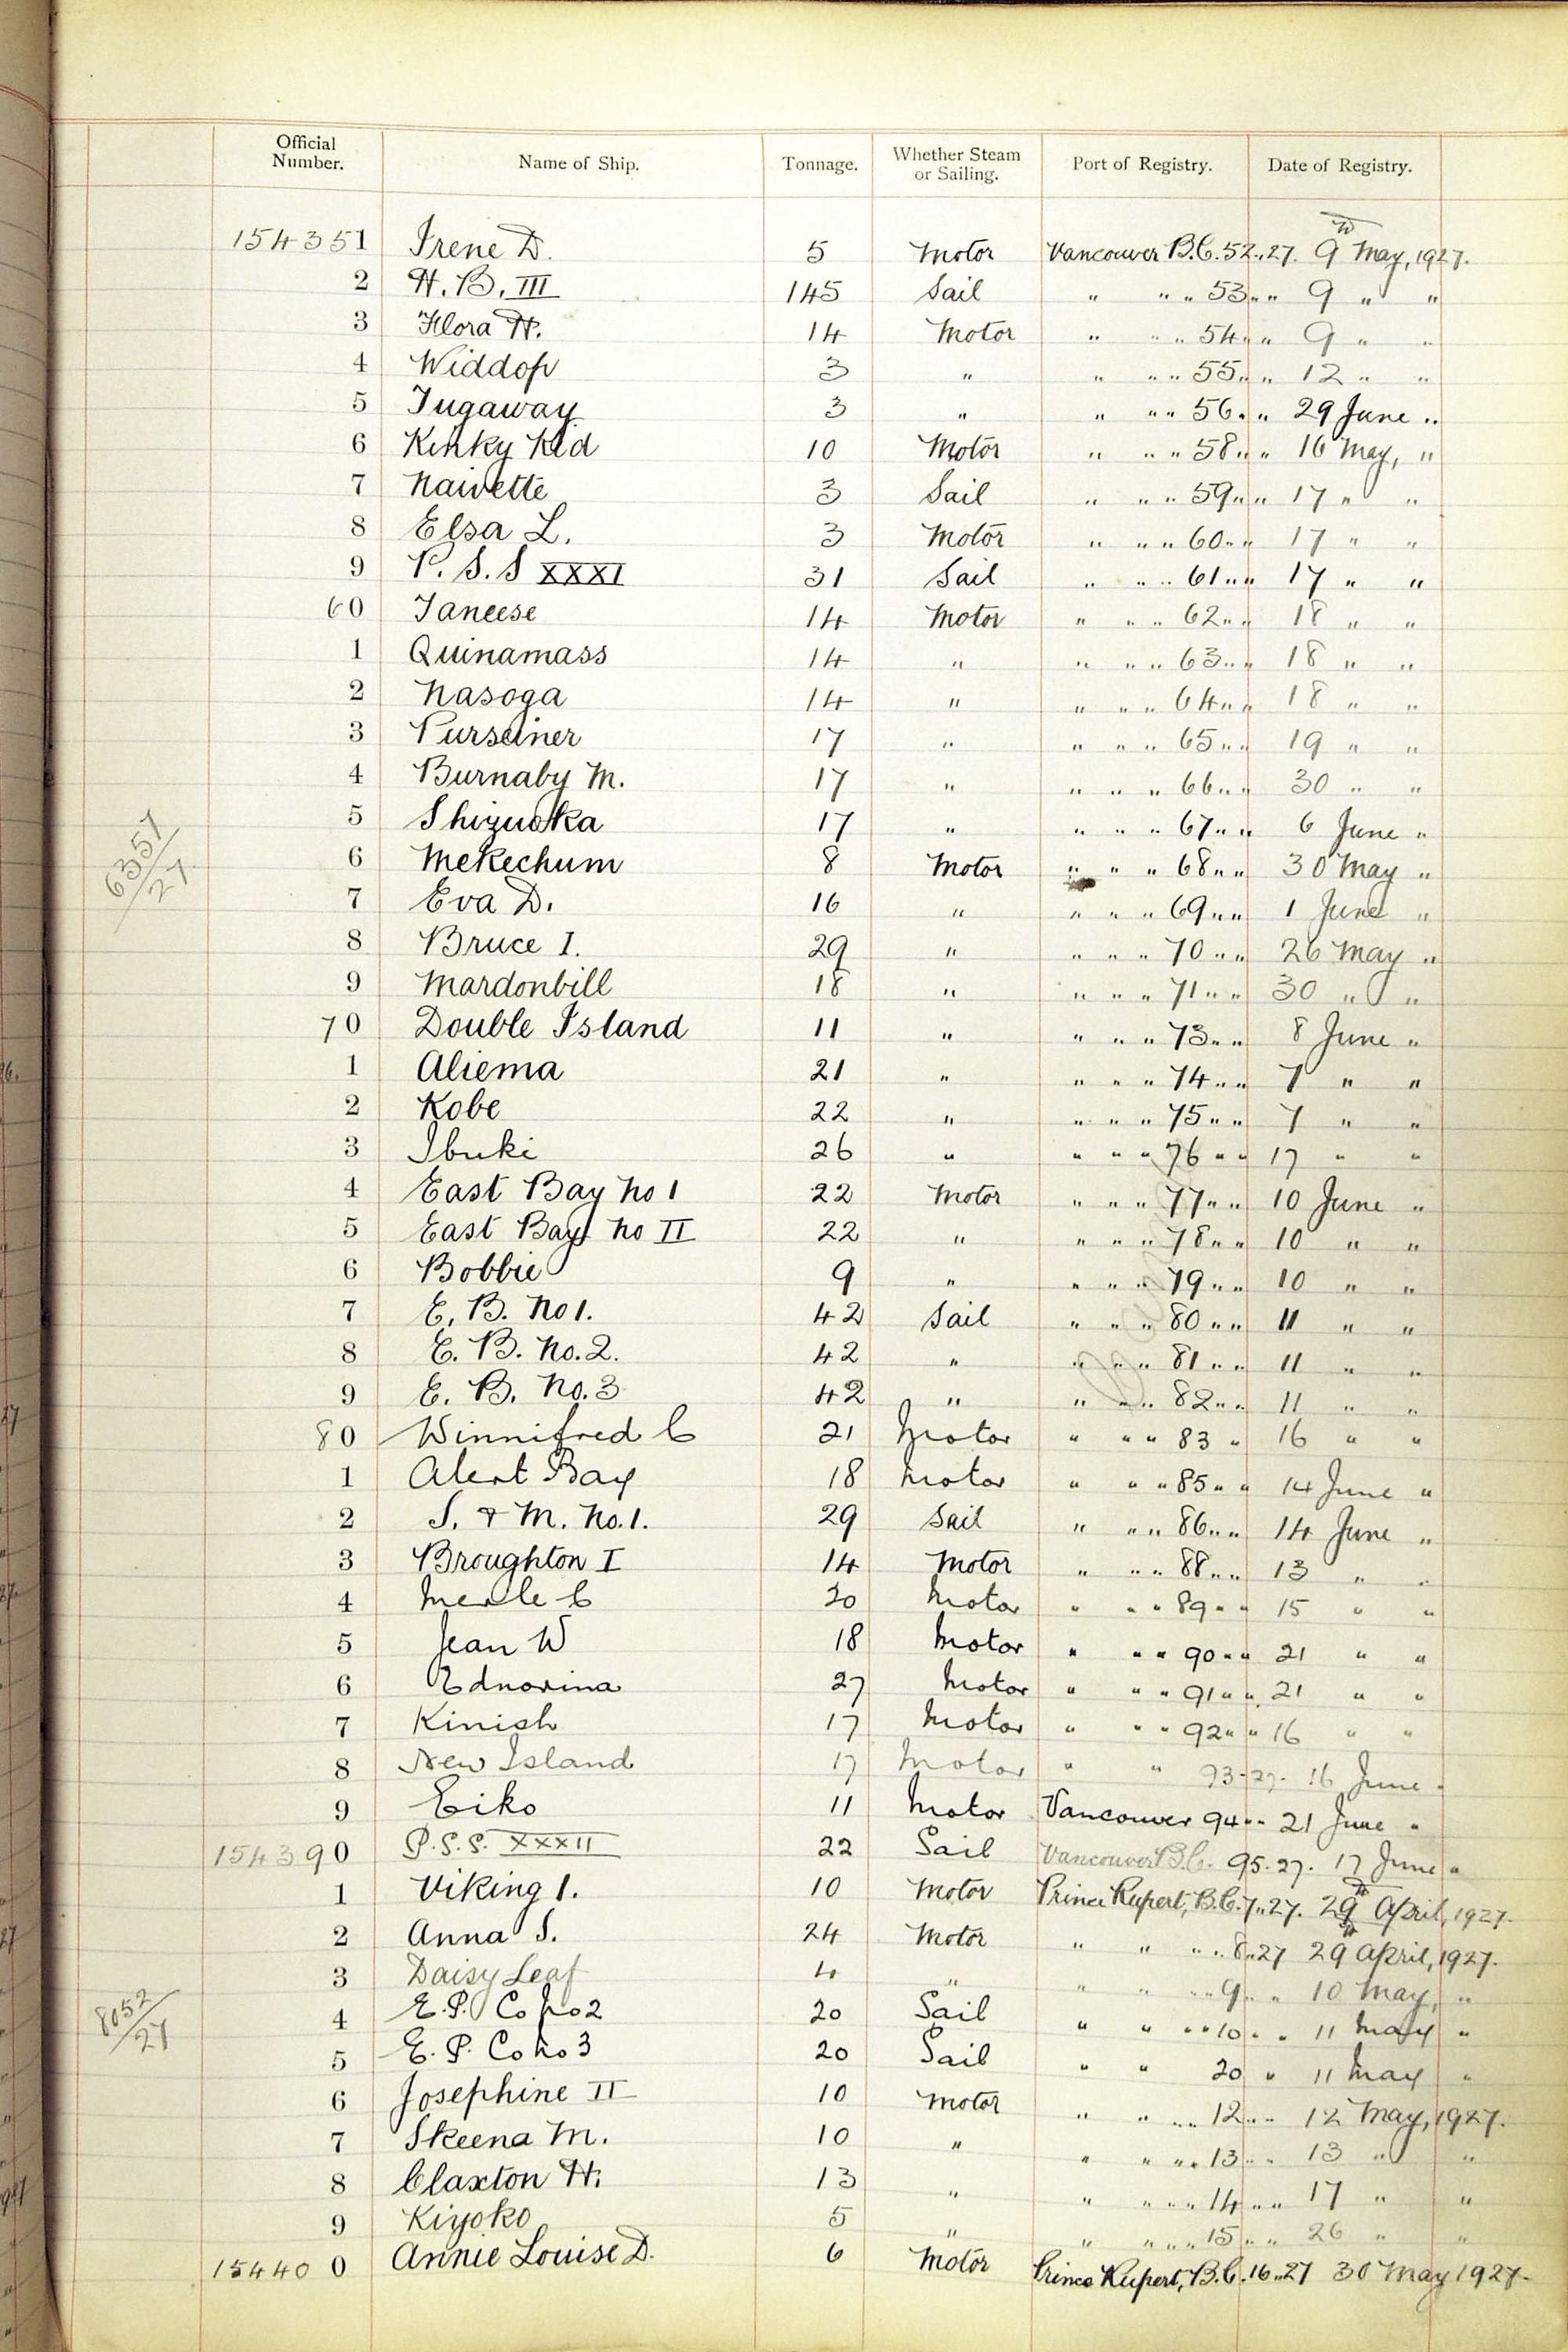 Official Number. Name of Ship. Tonnage. Whether Steam or Sailing. Port of Registry. Date of Registry.
154351 Irene D. 5 Motor Vancouver B.C. 52.,27. 9th May, 1927.
2 H.B. III 145 Sail " " " 53 " " 9 " "
3 Flora H. 14 Motor " " " 54 " " 9 " "
4 Widdop 3 " " " " 55 " " 12 " "
5 Tugaway 3 " " " " 56 " " 29 June "
6 Kinky Kid 10 Motor " " " 58 " " 16 May, "
7 Naivette 3 Sail " " " 59 " " 17 " "
8 Elsa L. 3 Motor " " " 60 " " 17 " "
9 P.S.S XXXI 31 Sail " " " 61 " " 17 " "
60 Taneese 14 Motor " " " 62 " " 18 " "
1 Quinamass 14 " " " " 63 " " 18 " "
2 Nasoga 14 " " " " 64 " " 18 " "
3 Purseiner 17 " " " " 65 " " 19 " "
4 Burnaby M. 17 " " " " 66 " " 30 " "
5 Shizuoka 17 " " " " 67 " " 6 June "
6357/27
6 Mekechum 8 Motor " " " 68 " " 30 May "
7 Eva D. 16 " " " " 69 " " 1 June "
8 Bruce I. 29 " " " " 70 " " 26 May "
9 Mardonbill 18 " " " " 71 " " 30 " "
70 Double Island 11 " " " " 73 " " 8 June "
1 Aliema 21 " " " " 74 " " 7 " "
2 Kobe 22 " " " " 75 " " 7 " "
3 Ibuki 26 " " " " 76 " " 17 " "
4 East Bay No 1 22 Motor " " " 77 " " 10 June "
5 East Bay No II 22 " " " " 78 " " 10 " "
6 Bobbie 9 " " " " 79 " " 10 " "
7 E. B. No 1. 42 Sail " " " 80 " " 11 " "
8 E. B. No. 2. 42 " " " " 81 " " 11 " "
9 E. B. No. 3 42 " " " " 82 " " 11 " "
80 Winnifred C 21 Motor " " " 83 " 16 " "
1 Alert Bay 18 Motor " " " 85 " " 14 June "
2 S. & M. No. 1. 29 Sail " " " 86 " " 14 June "
3 Broughton I 14 Motor " " " 88 " " 13 " "
4 Merle C 20 Motor " " " 89 " " 15 " "
5 Jean W 18 Motor " " " 90 " " 21 " "
6 Ednorina 27 Motor " " " 91 " " 21 " "
7 Kinish 17 Motor " " " 92 " " 16 " "
8 New Island 17 Motor " " 93-27- 16 June "
9 Eiko 11 Motor Vancouver 94 " " 21 June "
154390 P.S.S. XXXII 22 Sail Vancouver B.C. 95.27. 17 June "
1 Viking 1. 10 Motor Prince Rupert, B.C. 7.,27. 29th April, 1927.
2 Anna S. 24 Motor " " " " 8.,27 29th April, 1927.
3 Daisy Leaf 4 " " " " " 9 " " 10 May, "
8052/27
4 E.P. Co No 2 20 Sail " " " " 10 " " 11 May "
5 E.P. Co No 3 20 Sail " " 20 " 11 May "
6 Josephine II 10 Motor " " " " 12 " " 12 May, 1927.
7 Skeena M. 10 " " " " " 13 " " 13 " "
8 Claxton H. 13 " " " " " 14 " " 17 " "
9 Kiyoko 5 " " " " " 15 " " 26 " "
154400 Annie Louise D. 6 Motor Prince Rupert, B.C. 16.,27 30 May 1927.